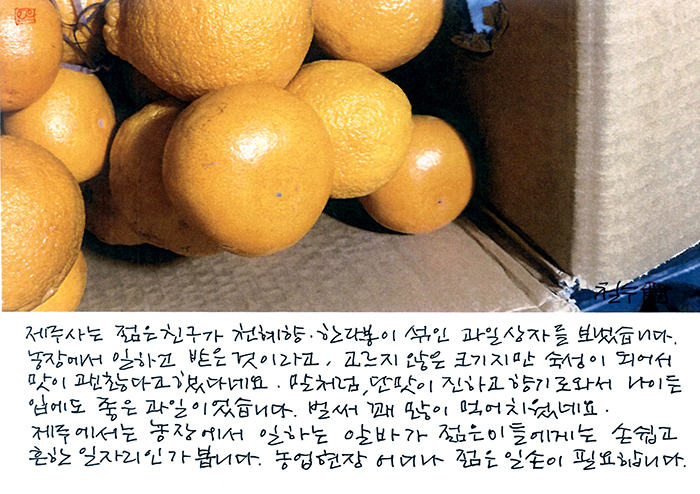 철수
제주사는 젊은친구가 천혜향·한라봉이 섞인 과일상자를 보냈습니다.
농장에서 일하고 받은것이라고, 고르지 않은 크기지만 숙성이 되어서
맛이 괜찮다고 했다네요. 말처럼, 단맛이 진하고 향기로와서 나이든
입에도 좋은 과일이었습니다. 벌써 꽤 많이 먹어치웠네요.
제주에서는 농장에서 일하는 알바가 젊은이들에게는 손쉽고
흔한 일자리인가 봅니다. 농업현장 어디나 젊은일손이 필요합니다.